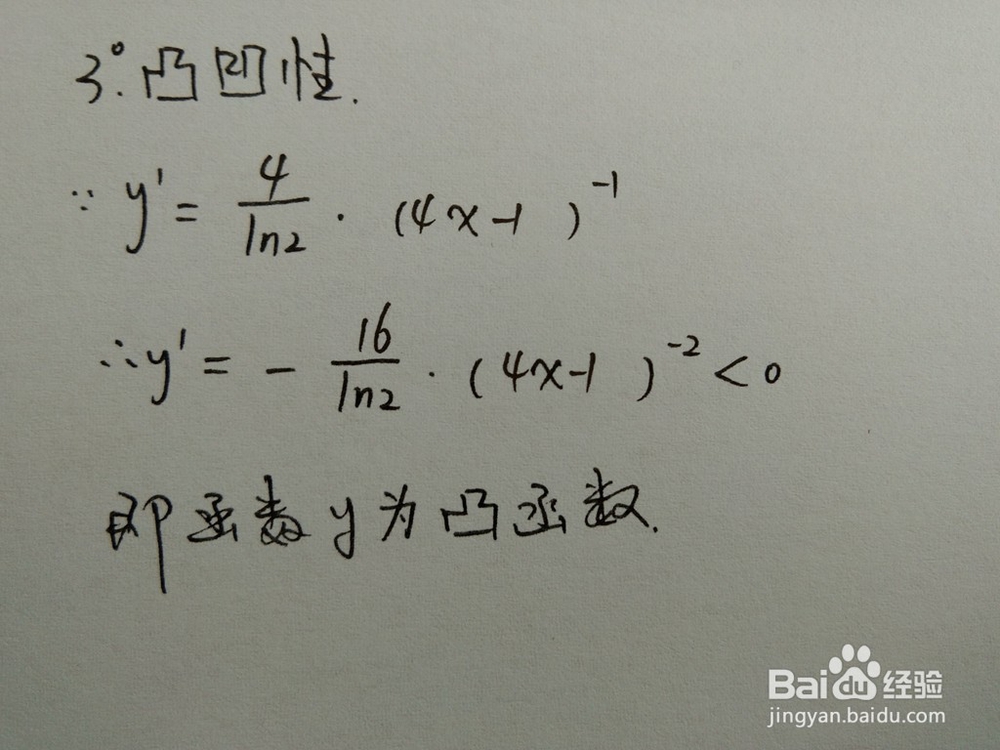 3°.凸凹性.
∵ y' = 4/ln2 · (4x-1)^-1
∴ y' = - 16/ln2 · (4x-1)^-2 < 0
即函数y为凸函数.
Baidu经验
jingyan.baidu.com